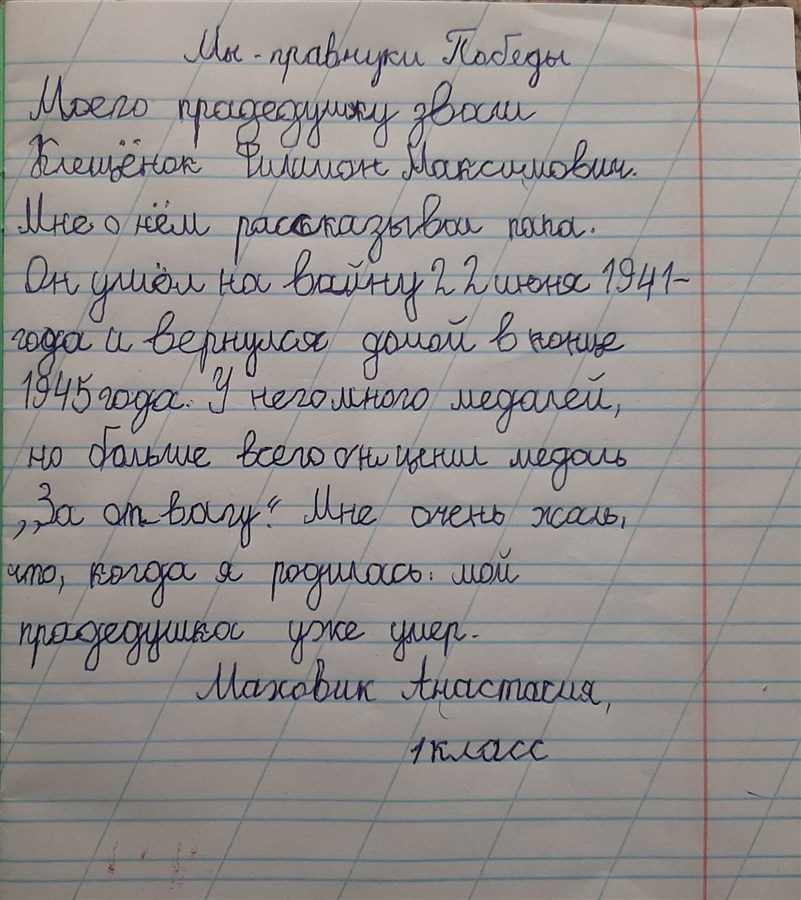 Мы - правнуки Победы
Моего прадедушку звали
Клещёнок Филимон Максимович.
Мне о нём рассказывал папа.
Он ушёл на войну 22 июня 1941-
года и вернулся домой в конце
1945 года. У него много медалей,
но больше всего он ценил медаль
,,За отвагу". Мне очень жаль,
что, когда я родилась. мой
прадедушка уже умер.
Маховик Анастасия,
1 класс